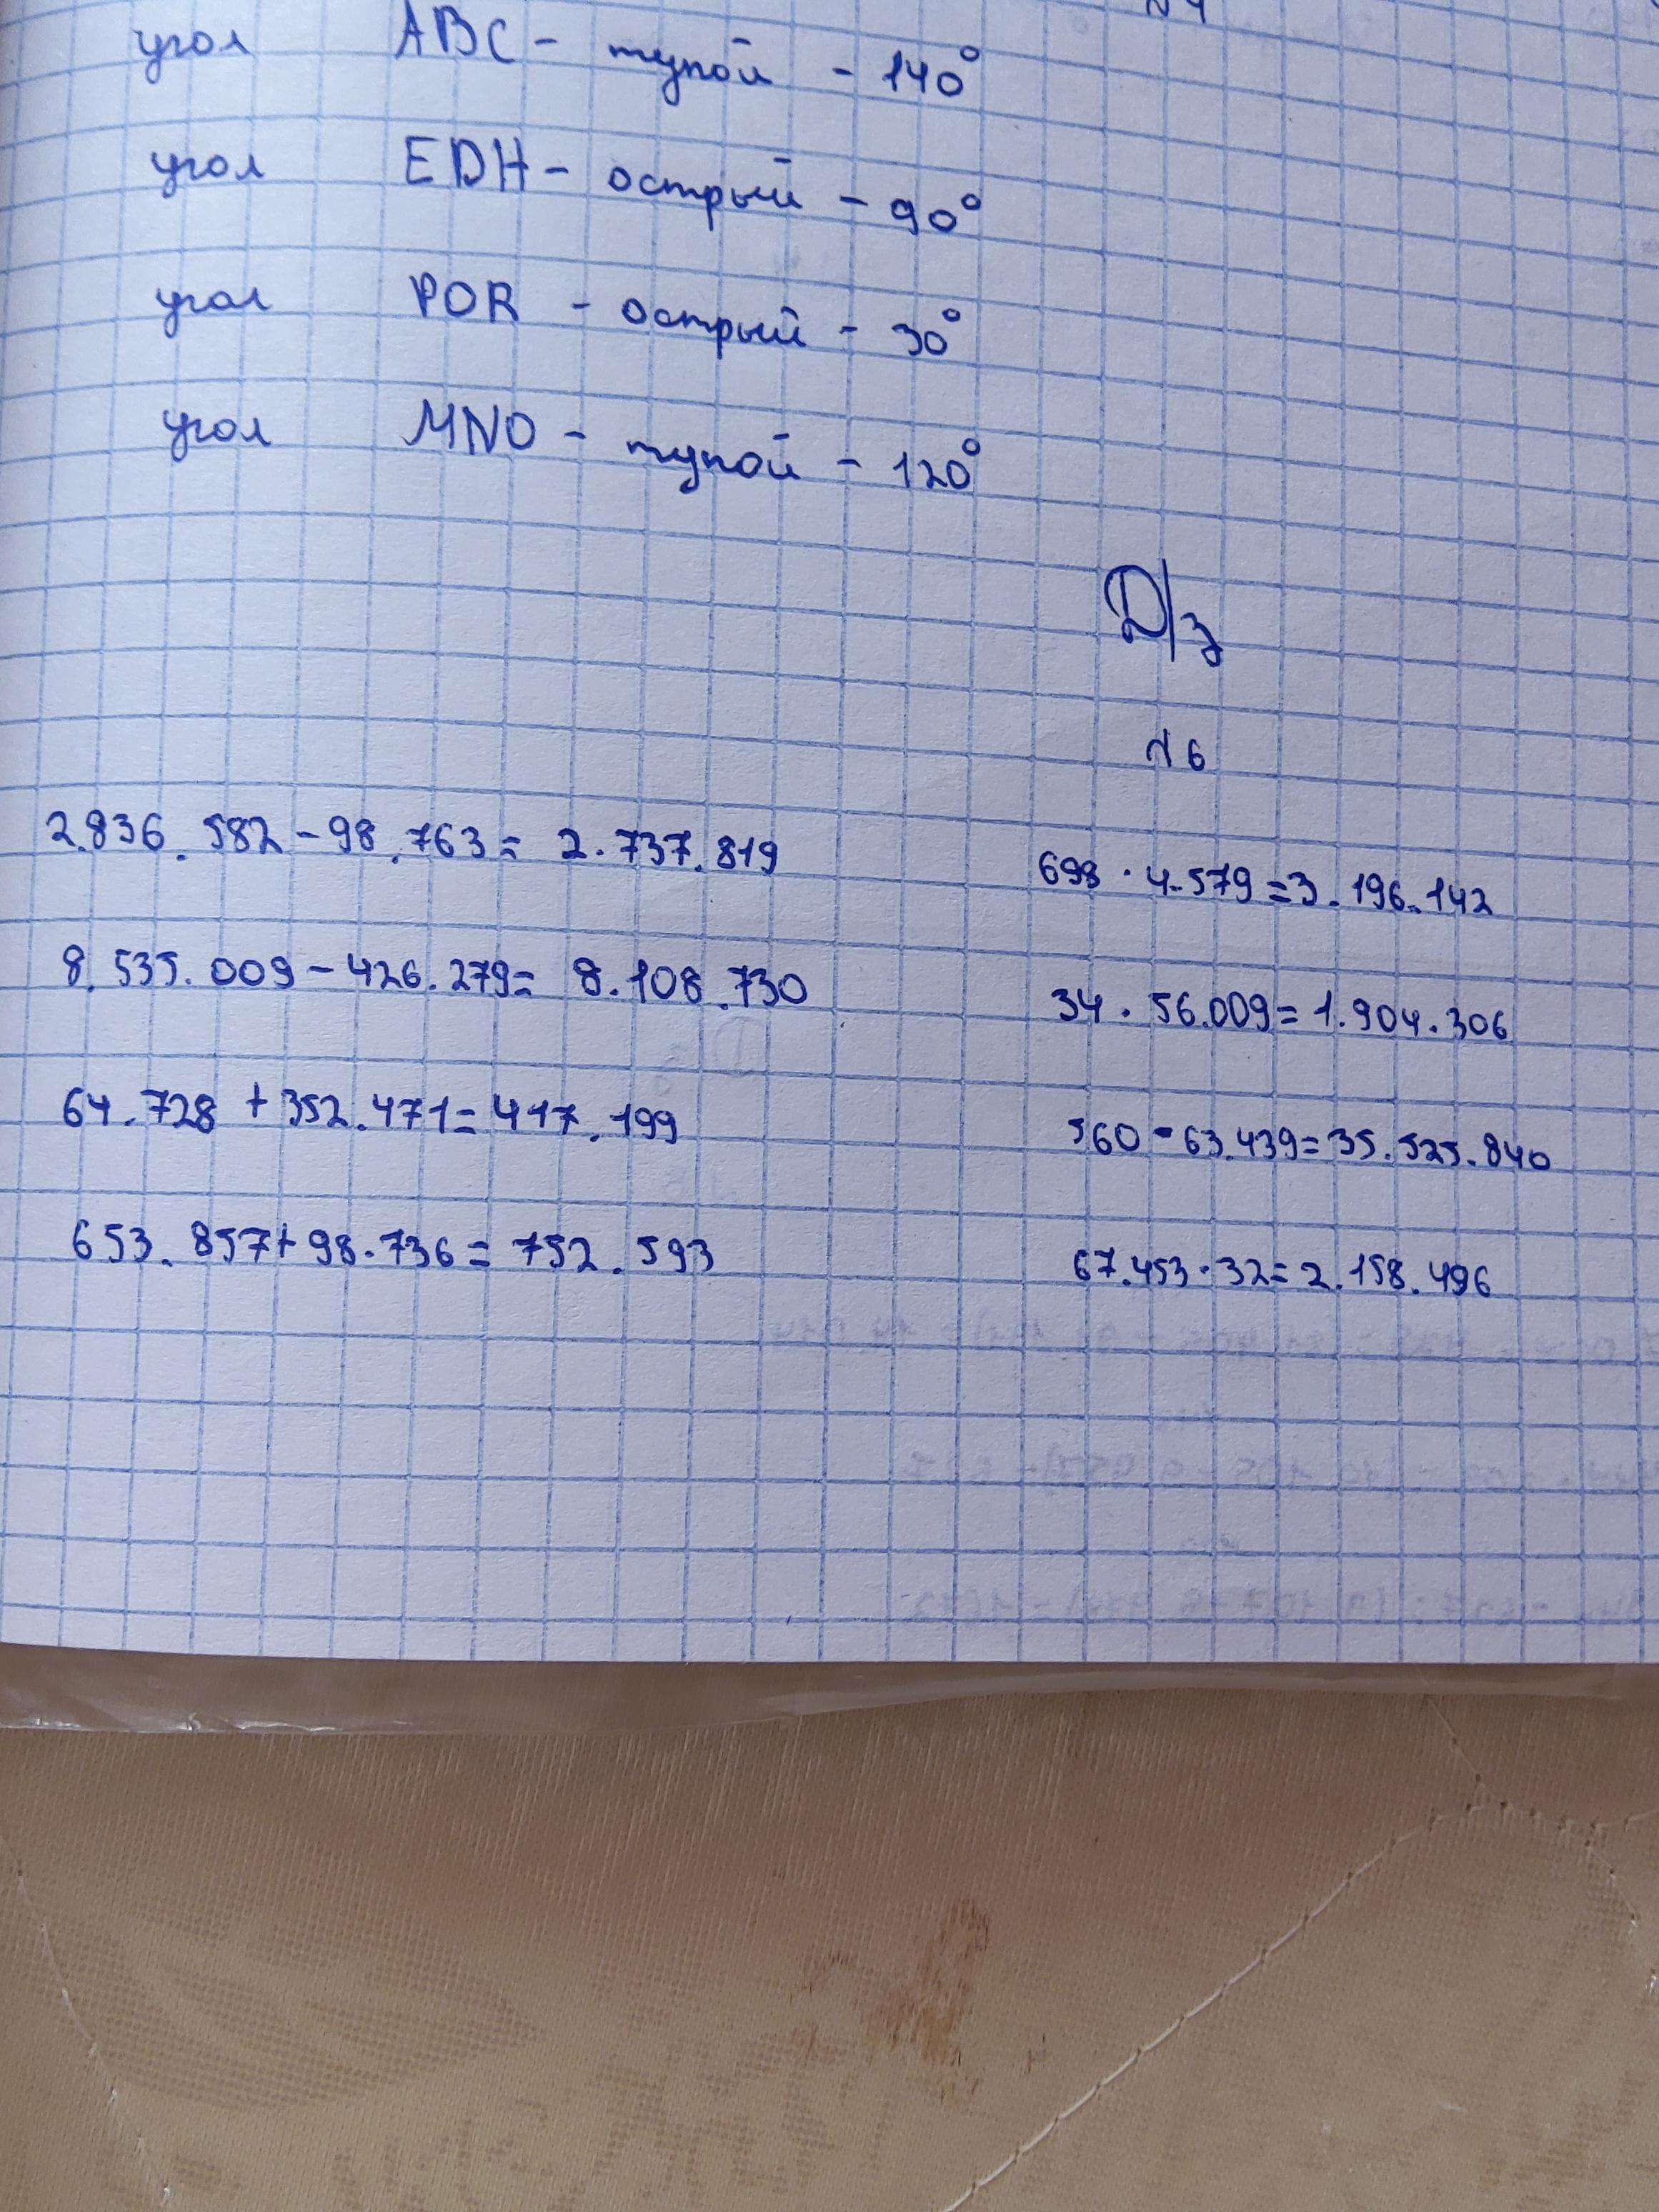 угол ABC - тупой - 140°
угол EDH - острый - 90°
угол POR - острый - 30°
угол MNO - тупой - 120°
Д/з
N6
2.836.582 - 98.763 = 2.737.819
698 · 4.579 = 3.196.142
8.535.009 - 426.279 = 8.108.730
34 · 56.009 = 1.904.306
64.728 + 352.471 = 417.199
560 · 63.439 = 35.525.840
653.857 + 98.736 = 752.593
67.453 · 32 = 2.158.496